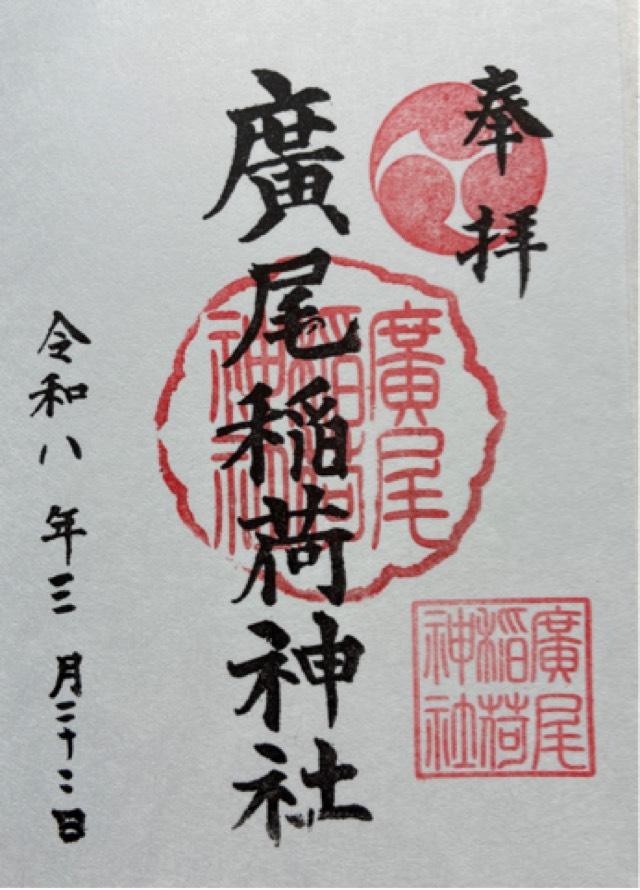 奉拝
廣尾稲荷神社
廣尾稲荷神社
廣尾稲荷神社
令和八年三月二十二日